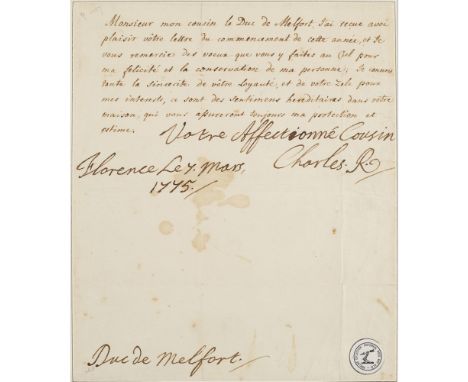 Monsieur mon cousin le Duc de Melfort. J'ai recue avec
plaisir vôtre lettre du commencement de cette année, et Je
vous remercie des voeux que vous y faites au Ciel pour
ma felicité et la conservation de ma personne; Je connois
toute la sincerité de vôtre Loyauté, et de votre Zele pour
mes interests, ce sont des Sentimens hereditaires dans vôtre
maison, qui vous assureront toujours ma protection et
estime.
Votre Affectionné Cousin
Charles. R.
Florence Le 7. Mars,
1775.
Duc de Melfort.